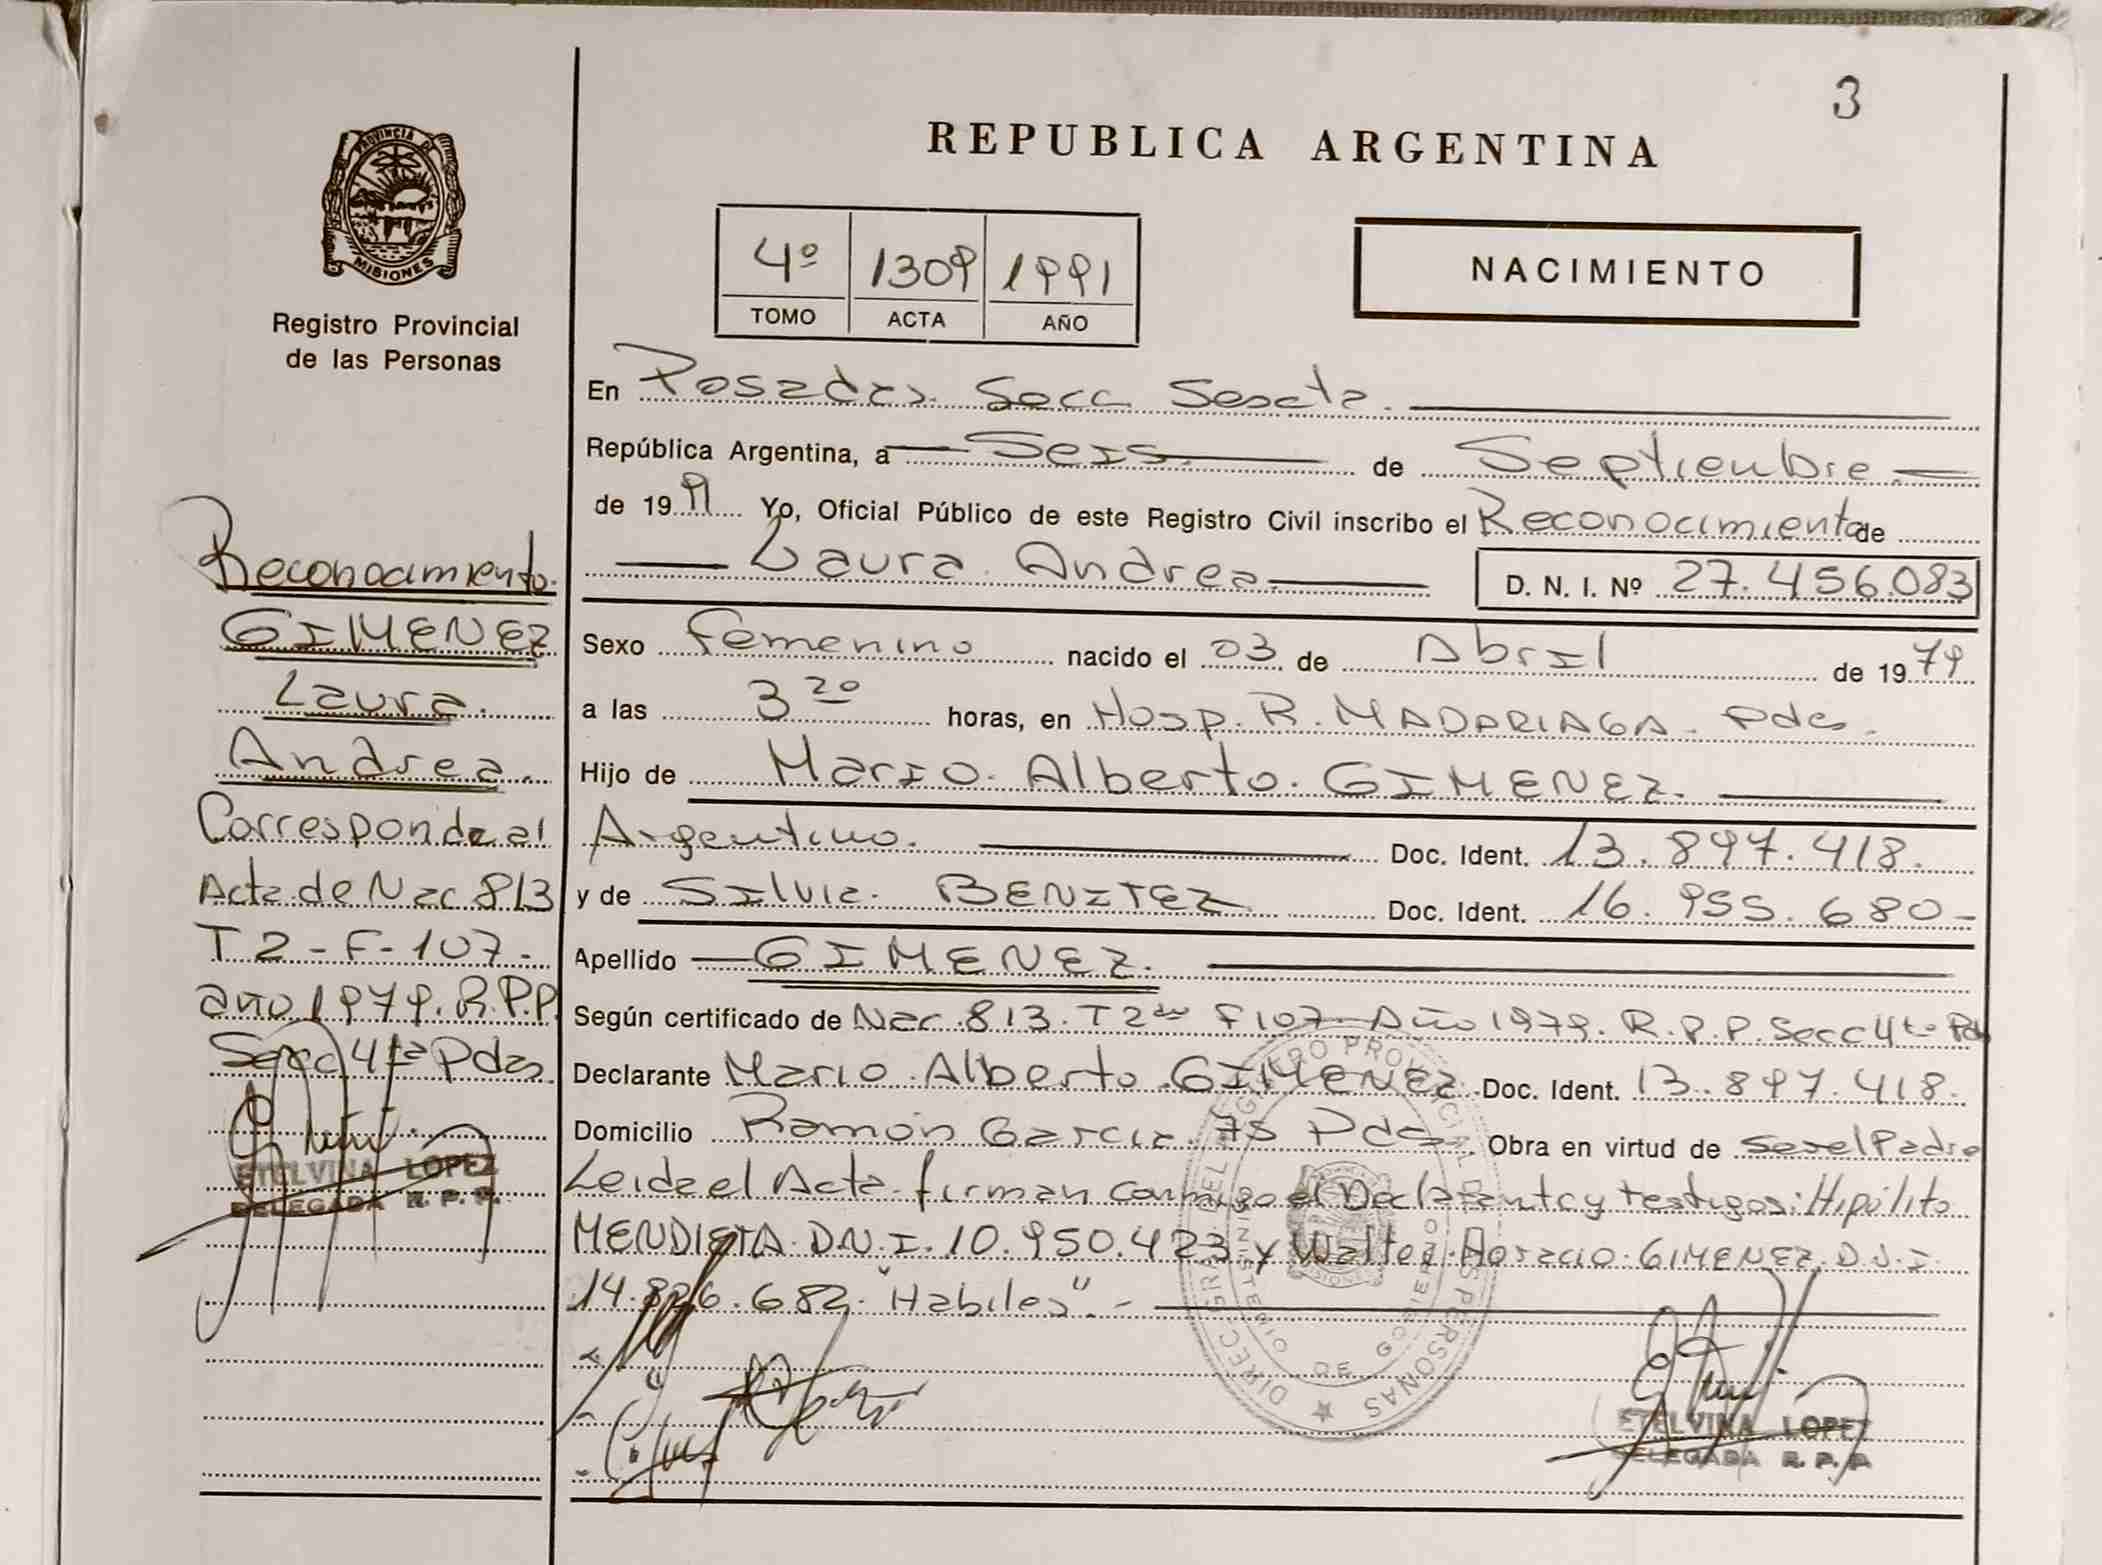 3
REPUBLICA ARGENTINA
PROVINCIA DE
MISIONES
Registro Provincial
de las Personas
4º 1309 1991
TOMO ACTA AÑO
NACIMIENTO
En Posadas. Secc Sexta.
República Argentina, a Seis. de Septiembre.
de 1991 Yo, Oficial Público de este Registro Civil inscribo el Reconocimiento de
Laura Andrea
D. N. I. Nº 27.456.083
Sexo femenino nacido el 03 de Abril de 1979
a las 3 20 horas, en Hosp. R. MADARIAGA. Pdas.
Hijo de Mario Alberto GIMENEZ.
Argentino. Doc. Ident. 13.897.418.
y de Silvia BENITEZ Doc. Ident. 16.955.680-
Apellido GIMENEZ.
Según certificado de Nac. 813. T 2do F 107 Año 1979. R.P.P. Secc 4ta Pds
Declarante Mario Alberto GIMENEZ. Doc. Ident. 13.897.418.
Domicilio Ramón Garcia 75 Pdas. Obra en virtud de ser el Padre
Leida el Acta firman conmigo el Declarante y testigos: Hipólito
MENDIETA D.N.I. 10.950.423 y Walter Horacio GIMENEZ D.N.I.
14.826.682 "Habiles".-
ETELVINA LOPEZ
DELEGADA R. P. P.
Reconocimiento.
GIMENEZ
Laura.
Andrea.
Corresponde al
Acta de Nac 813
T 2 - F - 107.
año 1979. R.P.P.
Secc 4ta Pdas.
ETELVINA LOPEZ
DELEGADA R. P. P.